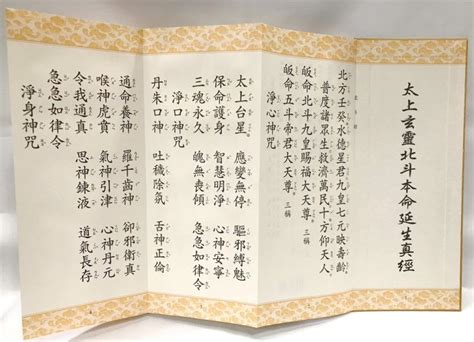 太上玄靈北斗本命延生真經
北方壬癸水德星君九皇七元映壽齡
普度諸眾生救濟萬民十方仰天人
皈命北斗九皇賜福大天尊 三稱
皈命五斗帝君大天尊 三稱
淨心神咒
太上台星 應變無停 驅邪縛魅
保命護身 智慧明淨 心神安寧
三魂永久 魄無喪傾 急急如律令
淨口神咒
丹朱口神 吐穢除氛 舌神正倫
通命養神 羅千齒神 卻邪衛真
喉神虎賁 氣神引津 心神丹元
令我通真 思神鍊液 道氣長存
急急如律令
淨身神咒